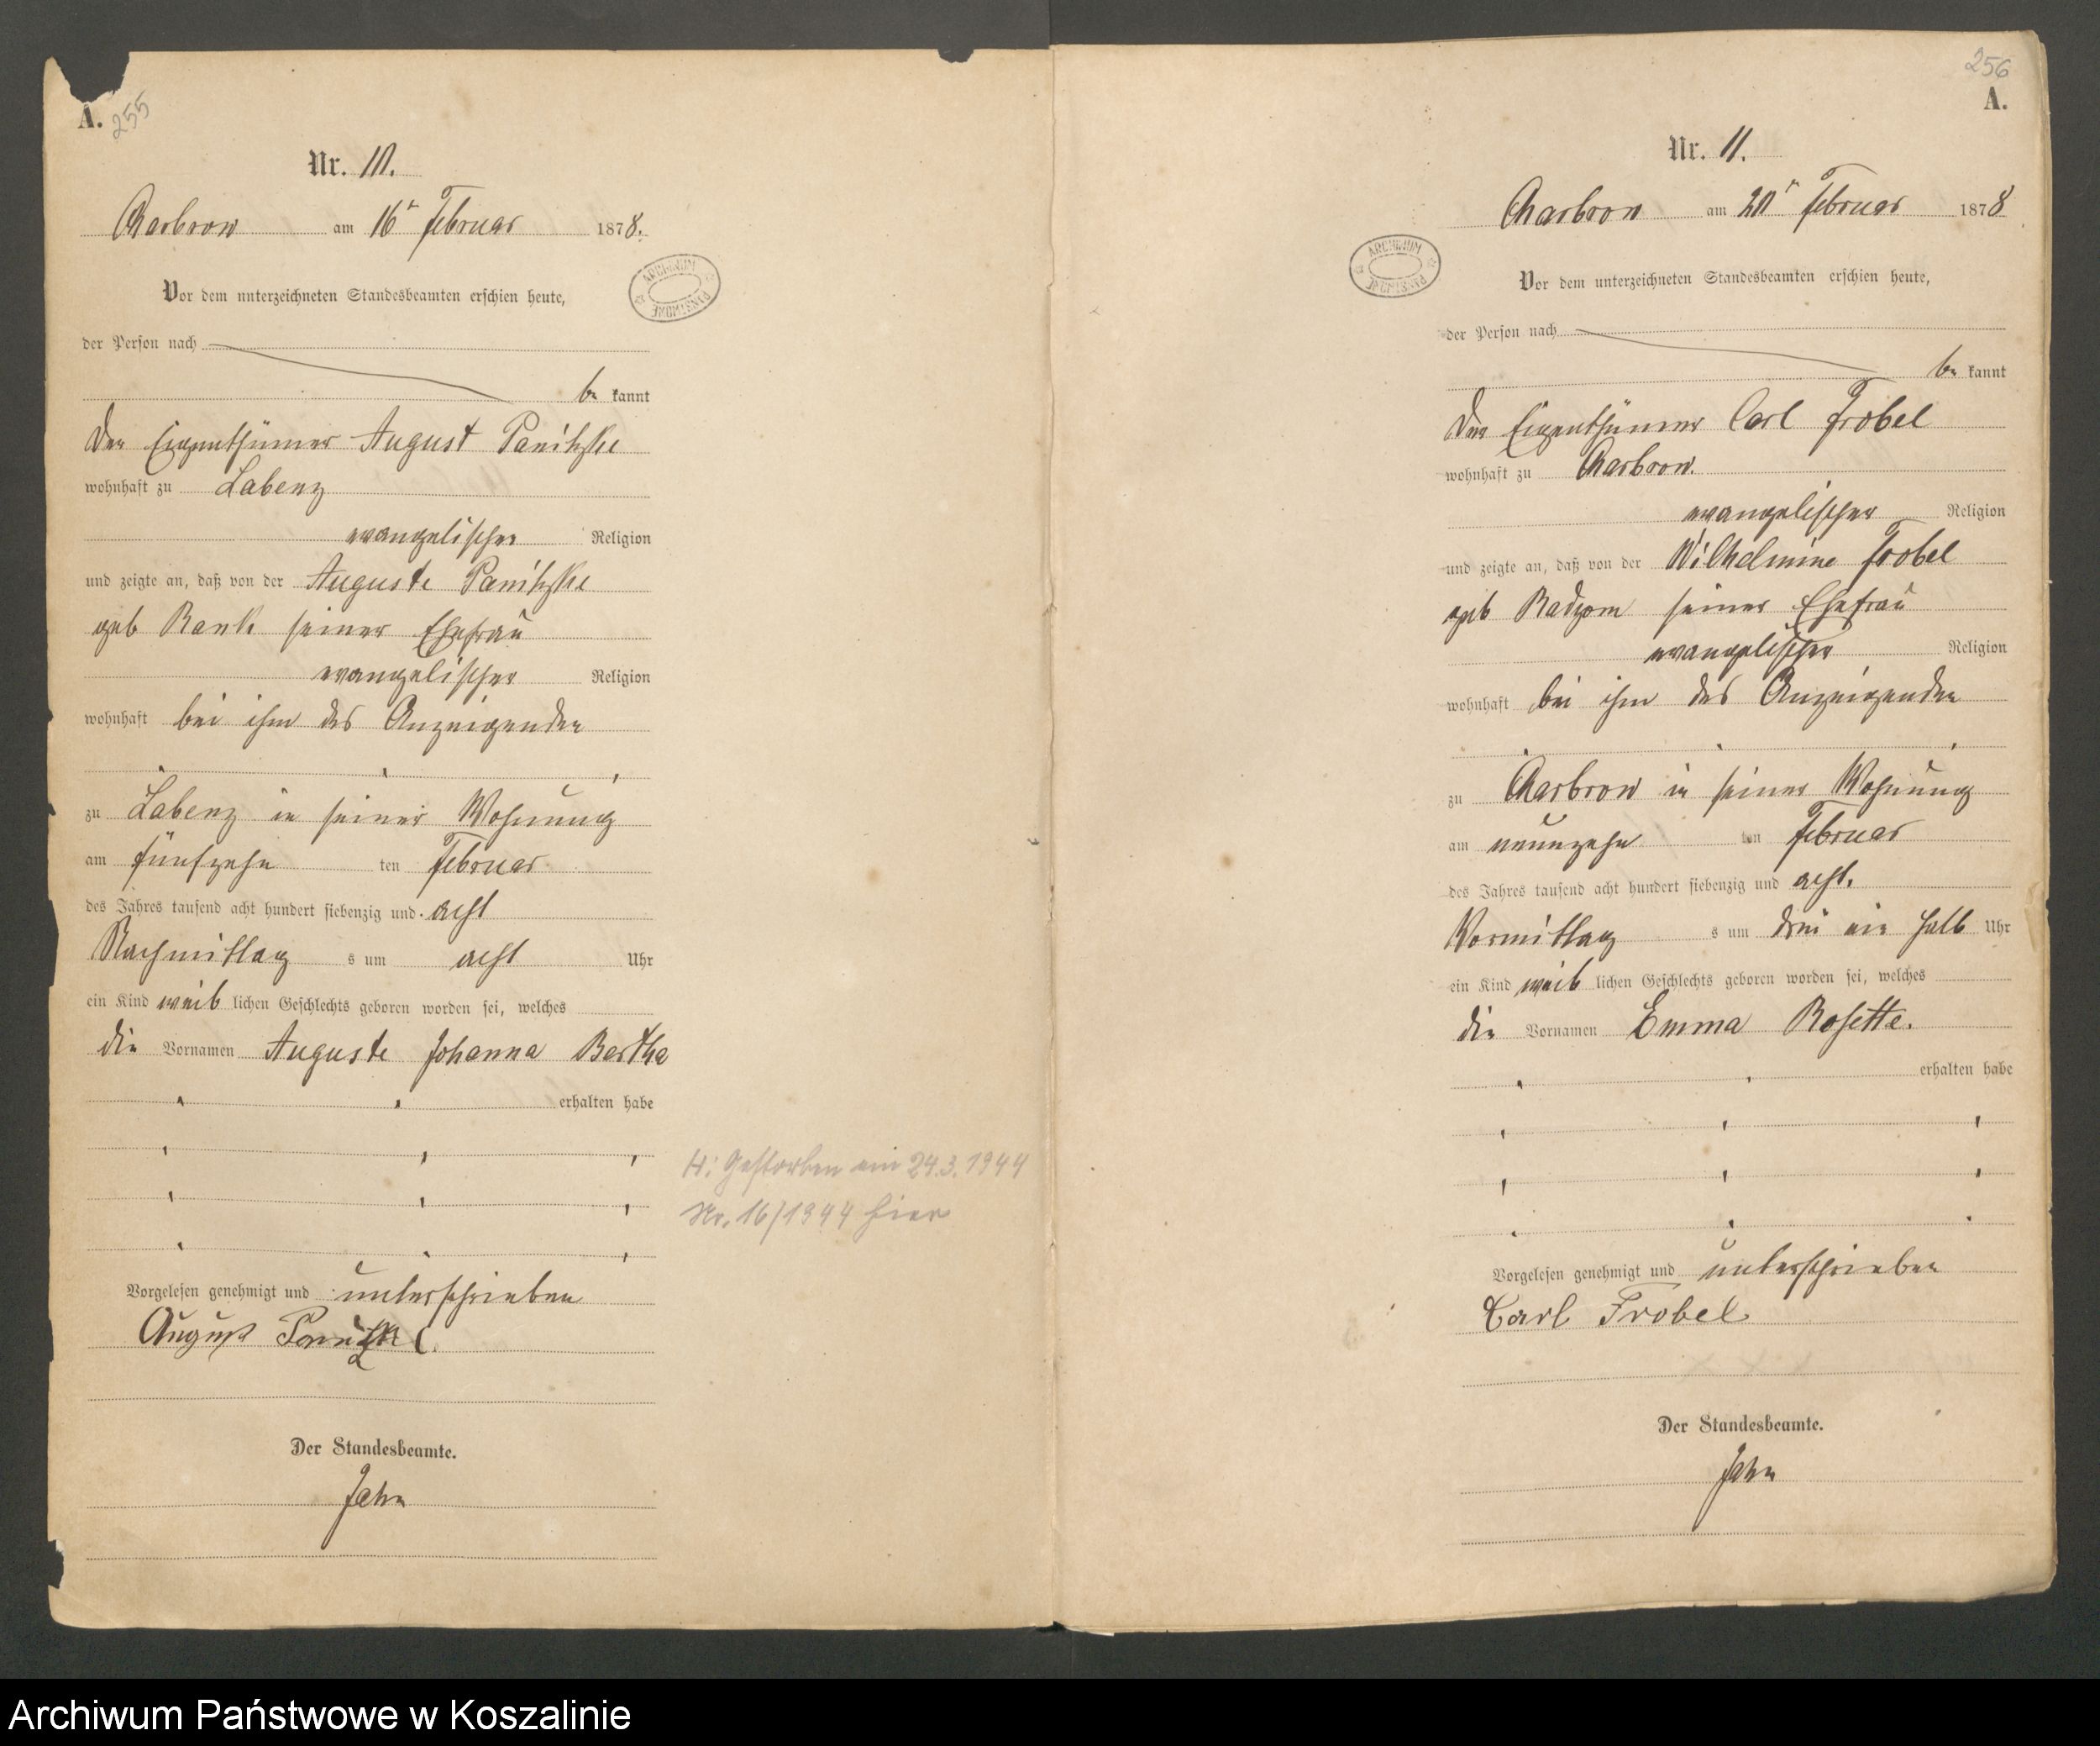 A. 255
Nr. 10.
Charbrow am 16ᵗ Februar 1878.
ARCHIWUM PAŃSTWOWE
Vor dem unterzeichneten Standesbeamten erschien heute,
der Person nach
be kannt
Der Eigenthümer August Panitzke
wohnhaft zu Labenz
evangelischer Religion
und zeigte an, daß von der Auguste Panitzke
geb Rank seiner Ehefrau
evangelischer Religion
wohnhaft bei ihm des Anzeigenden
zu Labenz in seiner Wohnung
am fünfzehn ten Februar
des Jahres tausend acht hundert siebenzig und acht
Nachmittag s um acht Uhr
ein Kind weib lichen Geschlechts geboren worden sei, welches
die Vornamen Auguste Johanna Bertha
erhalten habe
H: Gestorben am 24.3.1944
Nr. 16/1944 hier
Vorgelesen genehmigt und unterschrieben
August Panitzke
Der Standesbeamte.
Jahn
256
A.
Nr. 11.
Charbrow am 20ᵗ Februar 1878
ARCHIWUM PAŃSTWOWE
Vor dem unterzeichneten Standesbeamten erschien heute,
der Person nach
be kannt
Der Eigenthümer Carl Frobel
wohnhaft zu Charbrow.
evangelischer Religion
und zeigte an, daß von der Wilhelmine Frobel
geb Radzom seiner Ehefrau
evangelischer Religion
wohnhaft bei ihm des Anzeigenden
zu Charbrow in seiner Wohnung
am neunzehn ten Februar
des Jahres tausend acht hundert siebenzig und acht.
Vormittag s um drei ein halb Uhr
ein Kind weib lichen Geschlechts geboren worden sei, welches
die Vornamen Emma Rosette.
erhalten habe
Vorgelesen genehmigt und unterschrieben
Carl Frobel
Der Standesbeamte.
Jahn
Archiwum Państwowe w Koszalinie